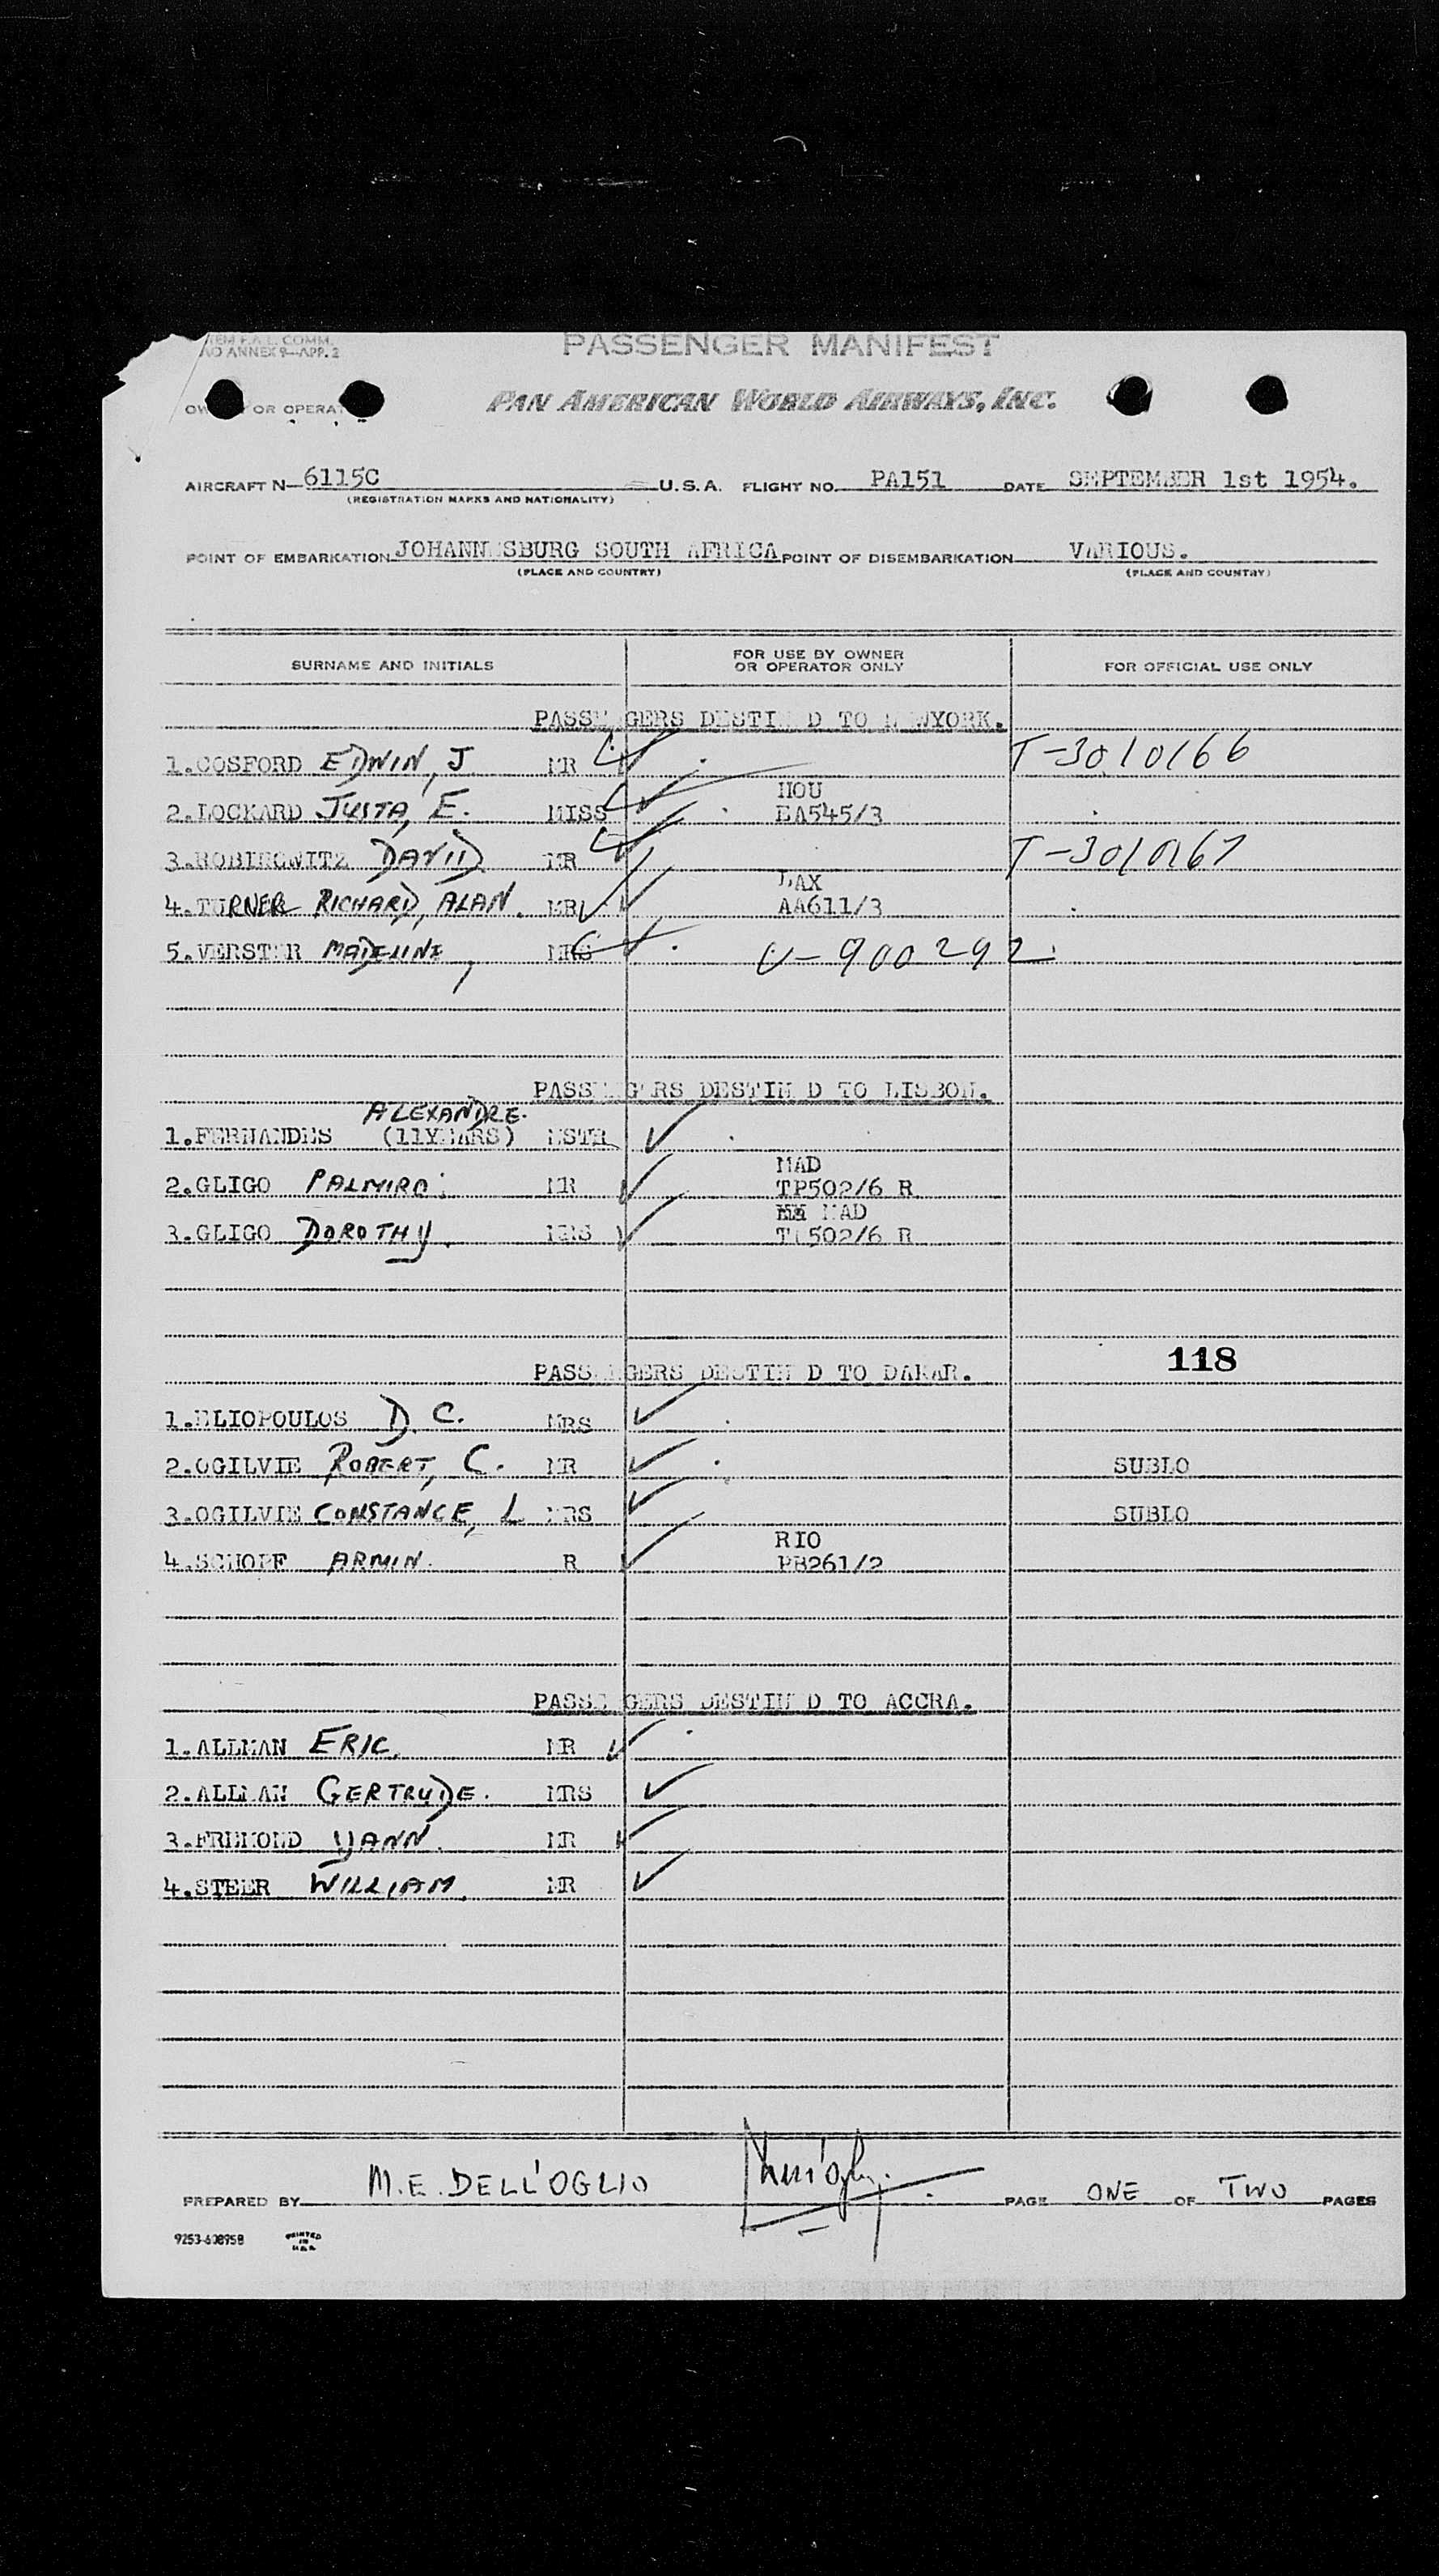 F.A.L. COMM.
ANNEX 9—APP. 2
PASSENGER MANIFEST
OR OPERAT
PAN AMERICAN WORLD AIRWAYS, INC.
AIRCRAFT N— 6115C U.S.A. FLIGHT NO. PA151 DATE SEPTEMBER 1st 1954.
(REGISTRATION MARKS AND NATIONALITY)
POINT OF EMBARKATION JOHANNESBURG SOUTH AFRICA POINT OF DISEMBARKATION VARIOUS.
(PLACE AND COUNTRY) (PLACE AND COUNTRY)
SURNAME AND INITIALS FOR USE BY OWNER OR OPERATOR ONLY FOR OFFICIAL USE ONLY
PASSENGERS DESTINED TO NEWYORK.
1.COSFORD EDWIN, J MR T-3010166
HOU
2.LOCKARD JUSTA, E. MISS EA545/3
3.ROBINOWITZ DAVID MR T-3010167
LAX
4.TURNER RICHARD, ALAN. MR AA611/3
5.VERSTER MADELINE, MRS V-900292
PASSENGERS DESTINED TO LISBON.
ALEXANDRE.
1.FERNANDES (11YEARS) MSTR
MAD
2.GLIGO PALMIRO MR TP502/6 R
MAD
3.GLIGO DOROTHY. MRS TP502/6 R
118
PASSENGERS DESTINED TO DAKAR.
1.ELIOPOULOS D. C. MRS
2.OGILVIE ROBERT, C. MR SUBLO
3.OGILVIE CONSTANCE, L MRS SUBLO
RIO
4.SCHOPF ARMIN. R PB261/2
PASSENGERS DESTINED TO ACCRA.
1.ALLMAN ERIC. MR
2.ALLMAN GERTRUDE. MRS
3.FREMOND YANN. MR
4.STEER WILLIAM. MR
PREPARED BY M.E. DELL'OGLIO PAGE ONE OF TWO PAGES
9253-608958 PRINTED IN U.S.A.